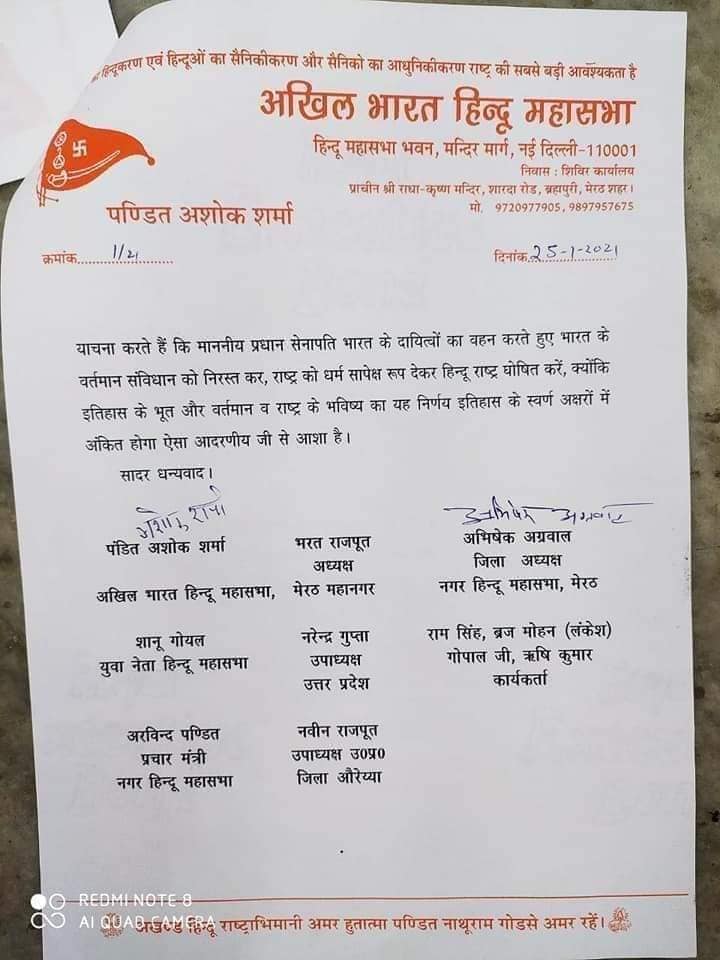 हिन्दूकरण एवं हिन्दूओं का सैनिकीकरण और सैनिको का आधुनिकीकरण राष्ट्र की सबसे बड़ी आवश्यकता है
अखिल भारत हिन्दू महासभा
हिन्दू महासभा भवन, मन्दिर मार्ग, नई दिल्ली-110001
निवास : शिविर कार्यालय
प्राचीन श्री राधा-कृष्ण मन्दिर, शारदा रोड, ब्रहापुरी, मेरठ शहर।
मो. 9720977905, 9897957675
पण्डित अशोक शर्मा
क्रमांक 1/21
दिनांक 25-1-2021
याचना करते हैं कि माननीय प्रधान सेनापति भारत के दायित्वों का वहन करते हुए भारत के
वर्तमान संविधान को निरस्त कर, राष्ट्र को धर्म सापेक्ष रूप देकर हिन्दू राष्ट्र घोषित करें, क्योंकि
इतिहास के भूत और वर्तमान व राष्ट्र के भविष्य का यह निर्णय इतिहास के स्वर्ण अक्षरों में
अंकित होगा ऐसा आदरणीय जी से आशा है।
सादर धन्यवाद।
अशोक शर्मा
अभिषेक अग्रवाल
पंडित अशोक शर्मा भरत राजपूत अभिषेक अग्रवाल
अध्यक्ष जिला अध्यक्ष
अखिल भारत हिन्दू महासभा, मेरठ महानगर नगर हिन्दू महासभा, मेरठ
शानू गोयल नरेन्द्र गुप्ता राम सिंह, ब्रज मोहन (लंकेश)
युवा नेता हिन्दू महासभा उपाध्यक्ष गोपाल जी, ऋषि कुमार
उत्तर प्रदेश कार्यकर्ता
अरविन्द पण्डित नवीन राजपूत
प्रचार मंत्री उपाध्यक्ष उ0प्र0
नगर हिन्दू महासभा जिला औरेय्या
REDMI NOTE 8
AI QUAD CAMERA
अखण्ड हिन्दू राष्ट्राभिमानी अमर हुतात्मा पण्डित नाथूराम गोडसे अमर रहें।